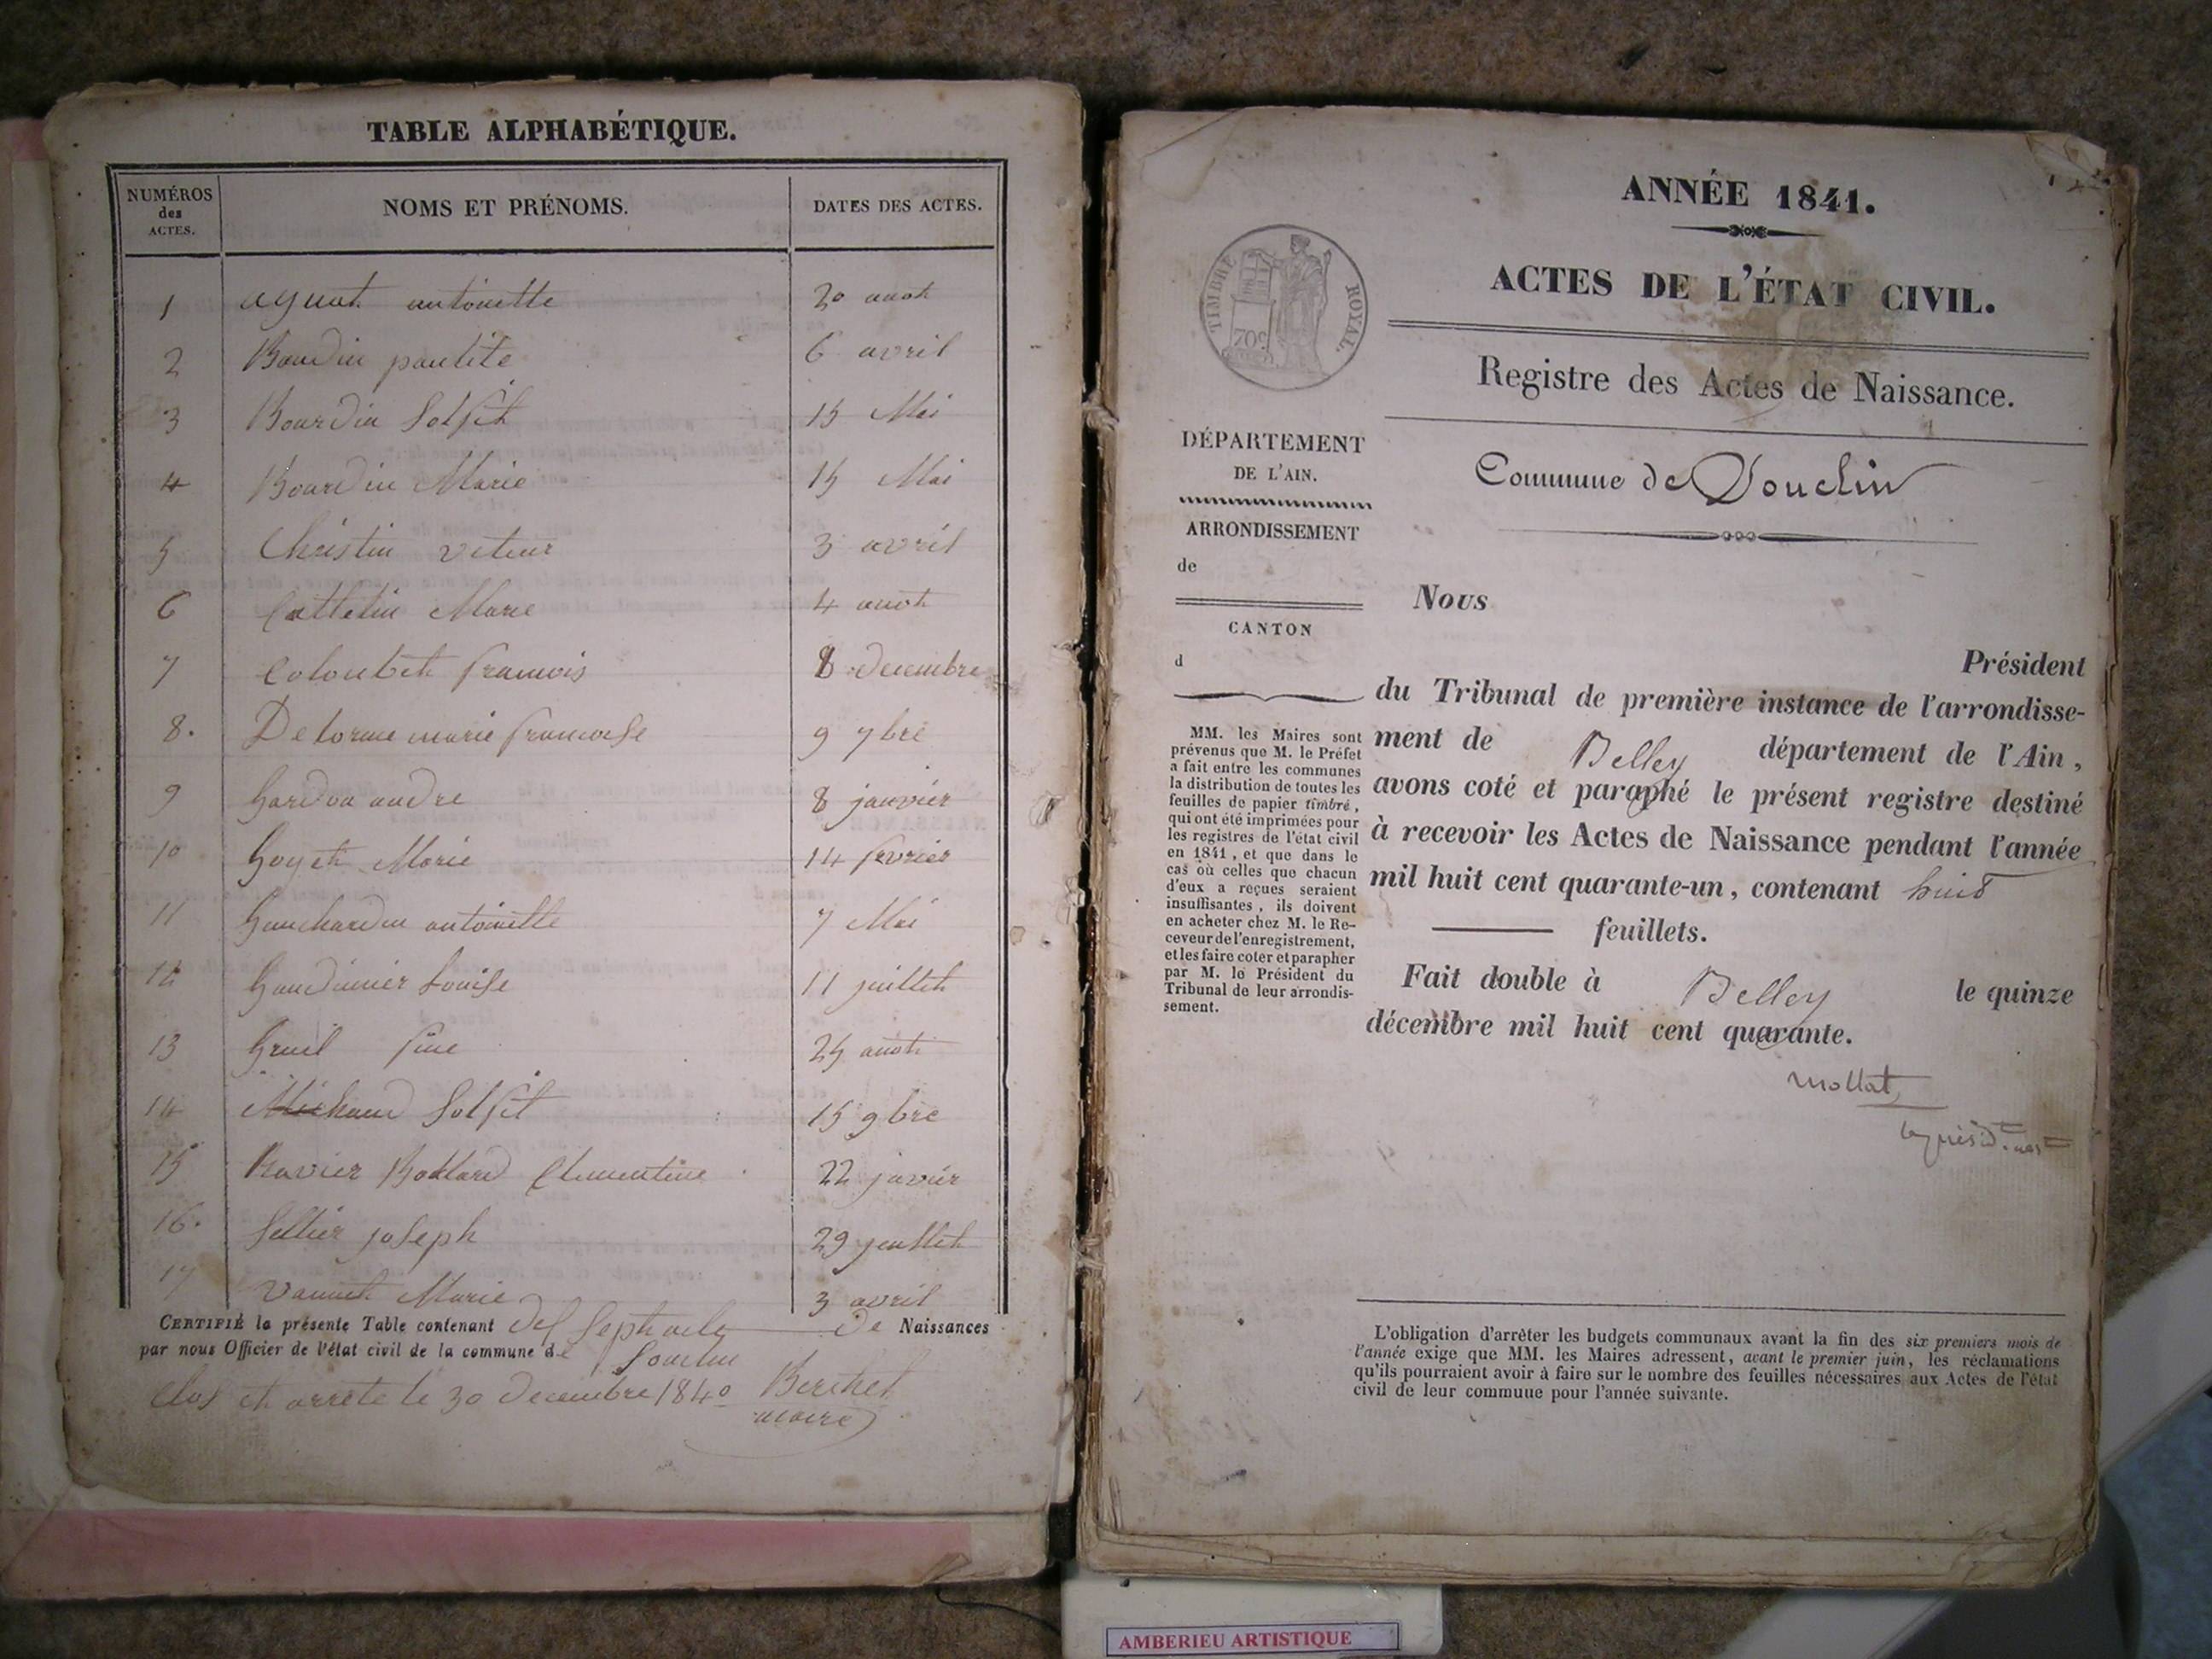 TABLE ALPHABÉTIQUE.
NUMÉROS des ACTES.
NOMS ET PRÉNOMS.
DATES DES ACTES.
1 antoinette 20 aout
2 6 avril
3 Bourdin 15 Mai
4 Bourdin Marie 15 Mai
5 Christin 3 avril
6 Marie 4 aout
7 francois 8 decembre
8. Delorme marie francoise 9 7bre
9 andre 8 janvier
10 Goyet Marie 14 fevrier
11 antoinette 7 Mai
12 Louise 11 juillet
13 25 aout
14 Michaud 15 9bre
15 Ravier Clementine 22 javier
16. Sellier joseph 29 juillet
17 Marie 3 avril
CERTIFIÉ la présente Table contenant de Naissances
par nous Officier de l'état civil de la commune de
Clos et arrete le 30 decembre 1840 Berthet
maire
ANNÉE 1841.
ACTES DE L'ÉTAT CIVIL.
TIMBRE ROYAL.
70c
Registre des Actes de Naissance.
Commune de
DÉPARTEMENT
DE L'AIN.
ARRONDISSEMENT
de
CANTON
d
MM. les Maires sont
prévenus que M. le Préfet
a fait entre les communes
la distribution de toutes les
feuilles de papier timbré,
qui ont été imprimées pour
les registres de l'état civil
en 1841, et que dans le
cas où celles que chacun
d'eux a reçues seraient
insuffisantes, ils doivent
en acheter chez M. le Re-
ceveur de l'enregistrement,
et les faire coter et parapher
par M. le Président du
Tribunal de leur arrondis-
sement.
Nous
Président
du Tribunal de première instance de l'arrondisse-
ment de Belley département de l'Ain,
avons coté et paraphé le présent registre destiné
à recevoir les Actes de Naissance pendant l'année
mil huit cent quarante-un, contenant huit
feuillets.
Fait double à Belley le quinze
décembre mil huit cent quarante.
mollat
L'obligation d'arrêter les budgets communaux avant la fin des six premiers mois de
l'année exige que MM. les Maires adressent, avant le premier juin, les réclamations
qu'ils pourraient avoir à faire sur le nombre des feuilles nécessaires aux Actes de l'état
civil de leur commune pour l'année suivante.
AMBERIEU ARTISTIQUE